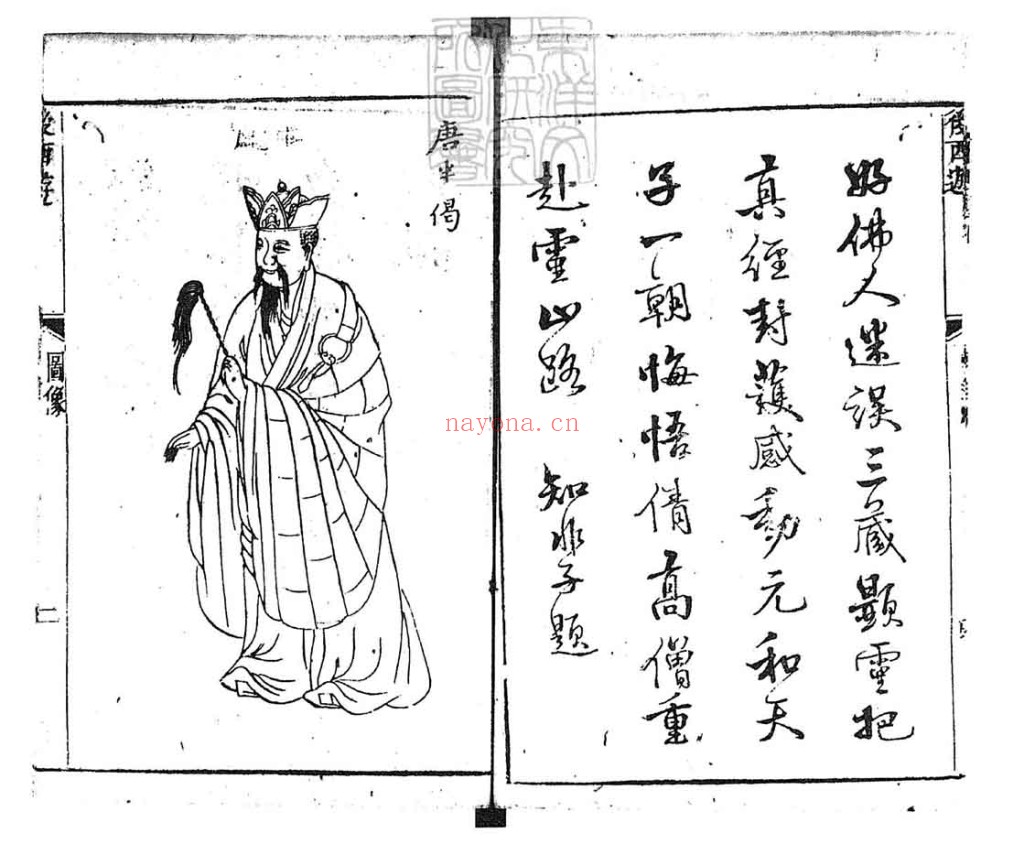 後西遊
好佛人迷誤三藏顯靈把
真經封護感動元和天
子一朝悔悟倩高僧重
赴靈山路 知非子題
唐半偈
後西遊
圖像
二
nayona.cn